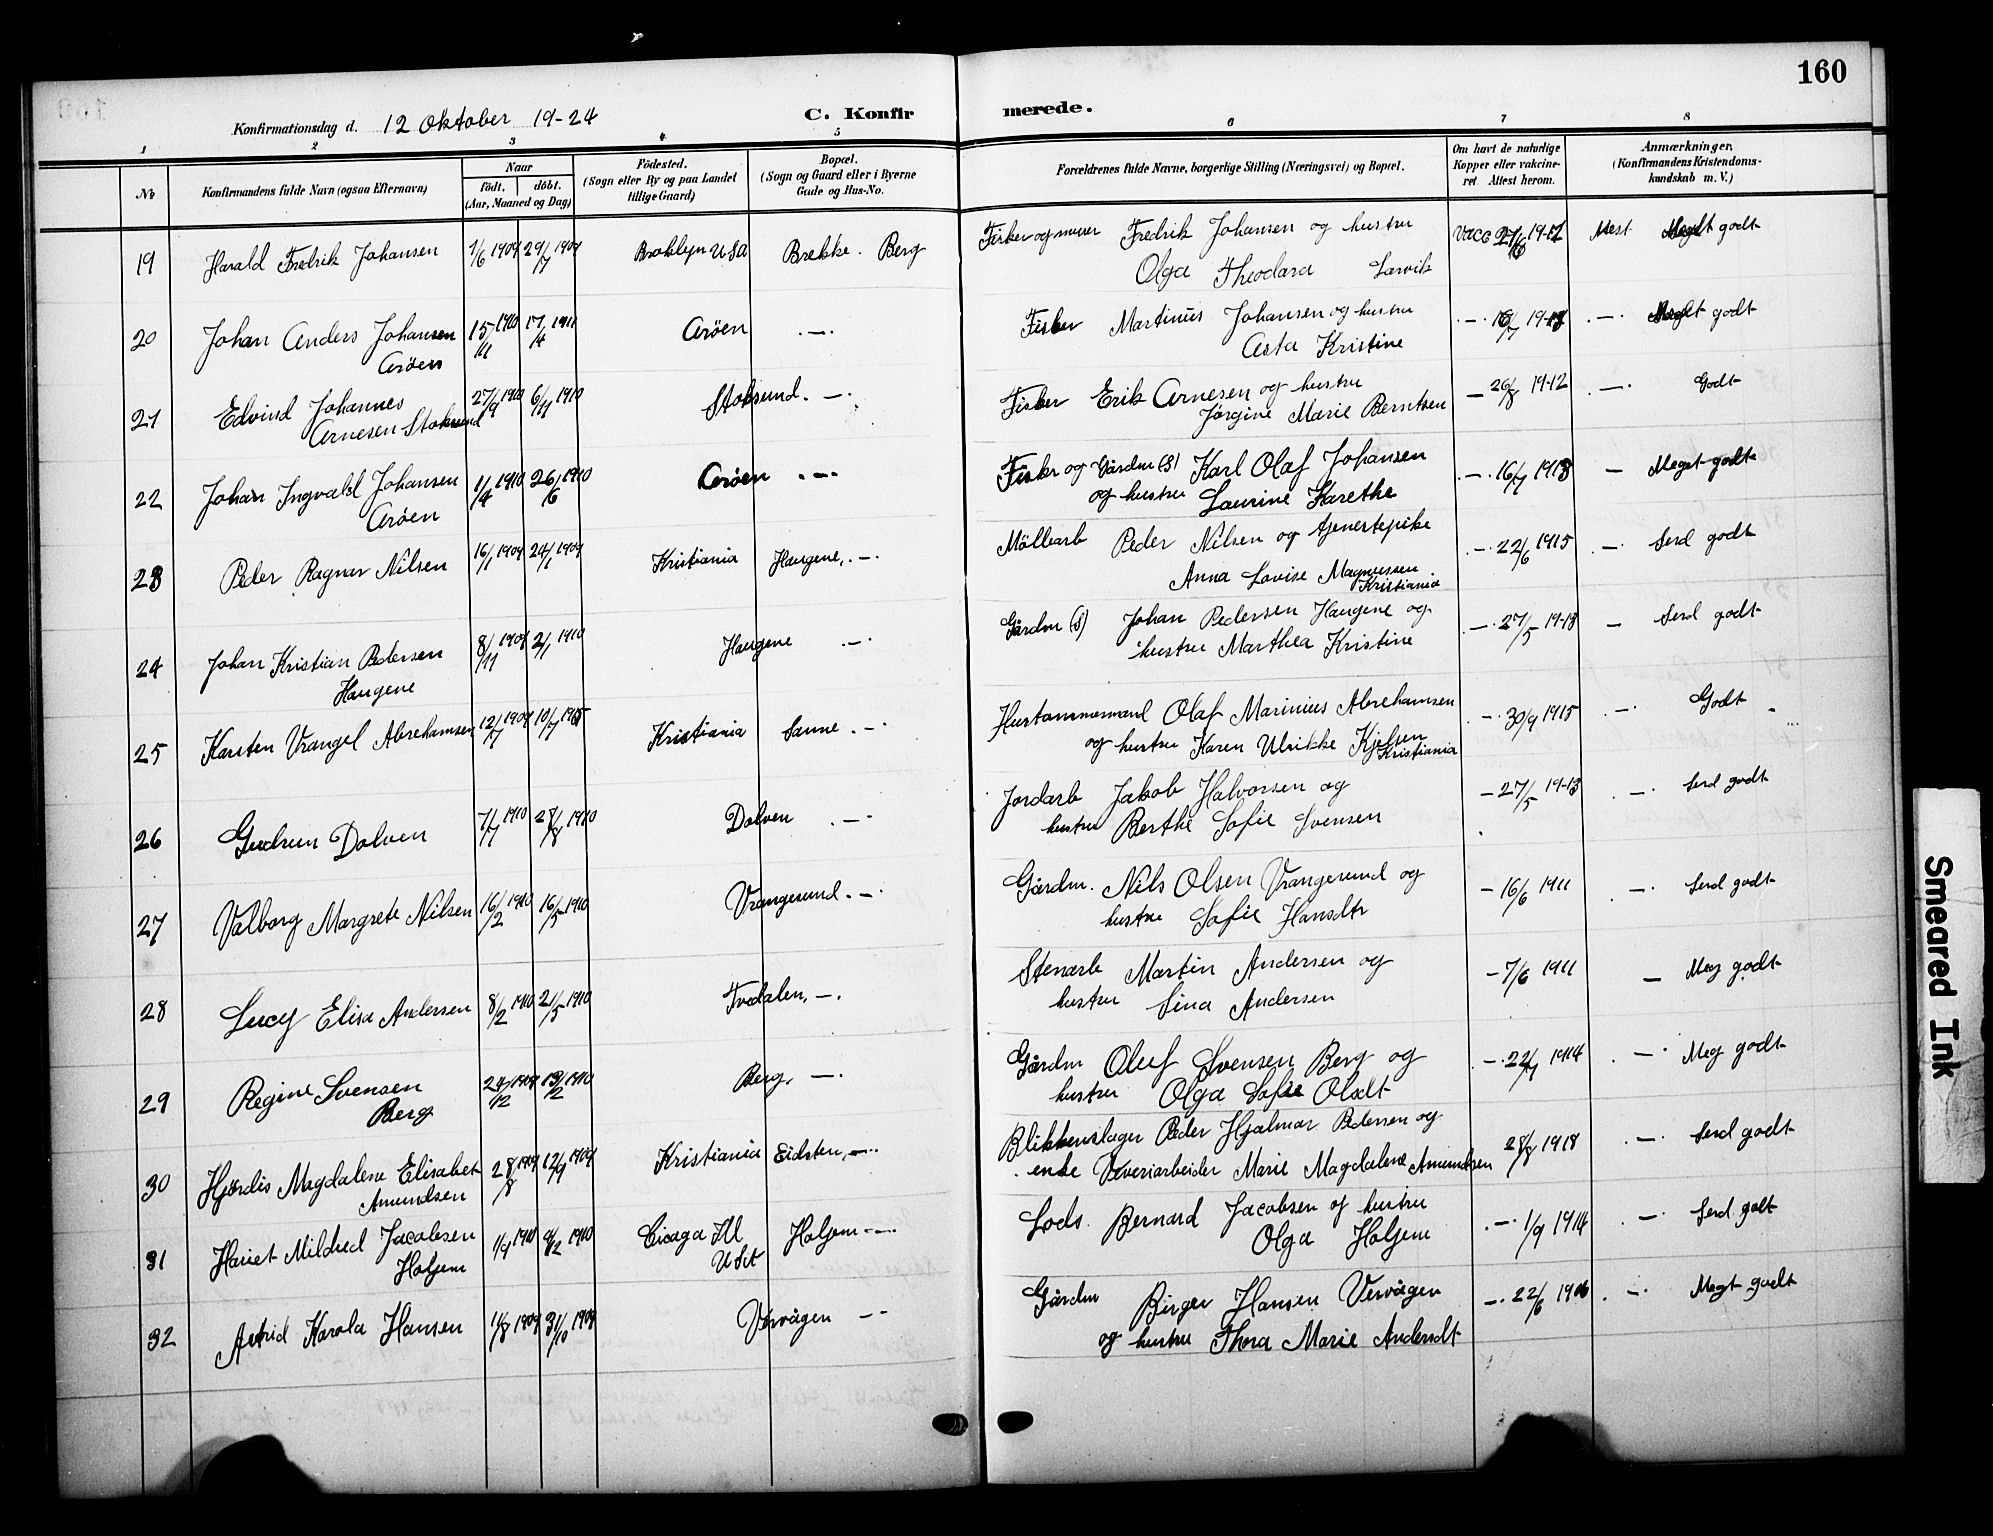 160
Konfirmationsdag d. 12 Oktober 19-24 C. Konfirmerede.
1 2 3 4 5 6 7 8
No Konfirmandens fulde Navn (ogsaa Efternavn) Naar født. døbt. (Aar, Maaned og Dag) Fødested. (Sogn eller By og paa Landet tillige Gaard) Bopæl. (Sogn og Gaard eller i Byerne Gade og Hus-No. Forældrenes fulde Navne, borgerlige Stilling (Næringsvei) og Bopæl. Om havt de naturlige Kopper eller vakcineret Attest herom. Anmærkninger. (Konfirmandens Kristendomskundskab m. V.)
19 Harald Fredrik Johansen 1/6 1909 29/7 1909 Broklyn USA Brekke. Berg Fisker og murer Fredrik Johansen og hustru vacc 21/6 19-12 Mest Meget godt
Olga Theodara Larvik
20 Johan Anders Johansen 15/11 1910 17/4 1911 Arøen . — . Fisker Martinius Johansen og hustru . — . 16/7 19-13 . — . godt
Arøen Asta Kristine
21 Edvind Johannes 27/9 1910 6/11 1910 Stoksund. — . Fisker Erik Arnesen og hustru — 26/8 19-12 . — . Godt
Arnesen Stoksund Jørgine Marie Berntsen
22 Johan Ingvald Johansen 1/4 1910 26/6 1910 Arøen . — Fisker og Gårdm (S) Karl Olaf Johansen . — . 16/7 1913 — Meget godt
Arøen og hustru Laurine Karethe
23 Peder Ragnar Nilsen 16/1 1909 24/1 1909 Kristiania Haugene, . — . Møllearb Peder Nilsen og tjenestepike . — . 22/6 1915 . — . Serd godt
Anna Lovise Magnussen
Kristiania
24 Johan Kristian Pedersen 8/11 1909 2/1 1910 Haugene . — . Gårdm (S) Johan Pedersen Haugene og . — . 27/5 19-13 — Serd godt
Haugene hustru Marthea Kristine
25 Karsten Vrangel Abrehamsen 12/7 1909 10/7 Kristiania Sanne . — . Hustømmermand Olaf Marinius Abrehamsen . — . 30/9 1915 . — . Godt
og hustru Karen Ulrikke Kjelsen
Kristiania
26 Gudrun Dolven 7/7 1910 28/8 1910 Dolven . — . Jordarb Jakob Halvorsen og — 27/5 19-13 . — . Serd godt
hustru Berthe Sofie Svensen
27 Valborg Margrete Nilsen 16/2 1910 16/5 1910 Vrangesund. — . Gårdm. Nils Olsen Vrangesund og — 16/6 1911 . — . Serd godt
hustru Sofie Hansdtr
28 Lucy Elisa Andersen 8/2 1910 21/5 1910 Tvedalen, — . Stenarb Martin Andersen og — 7/6 1911 — Meg godt
hustru Sina Andersen
29 Regine Svensen 24/12 1909 13/2 1910 Berg, — . Gårdm Oluf Svensen Berg og — . 1914 . — . Meg godt
Berg hustru Olga Sofie Olsdt
30 Hjørdis Magdalene Elisabet 28/8 1909 12/9 1909 Kristiania Eidsten, — . Blikkenslager Peder Hjalmar Pedersen og 28/8 1918 . — . Serd godt
Amundsen enke Veveriarbeider Marie Magdalene Amundsen
31 Hariet Mildred Jacobsen 1910 1910 Cicago Ill Holjem . — . Lods. Bernard Jacobsen og hustru . — . 1/9 1914 . — . Serd godt
Holjem Olga Holjem
32 Astrid Karola Hansen 1909 31/10 1909 Vervågen — . Gårdm Birger Hansen Vervågen — . 22/6 . — . Megt godt
og hustru Thora Marie Andersdt
Smeared Ink